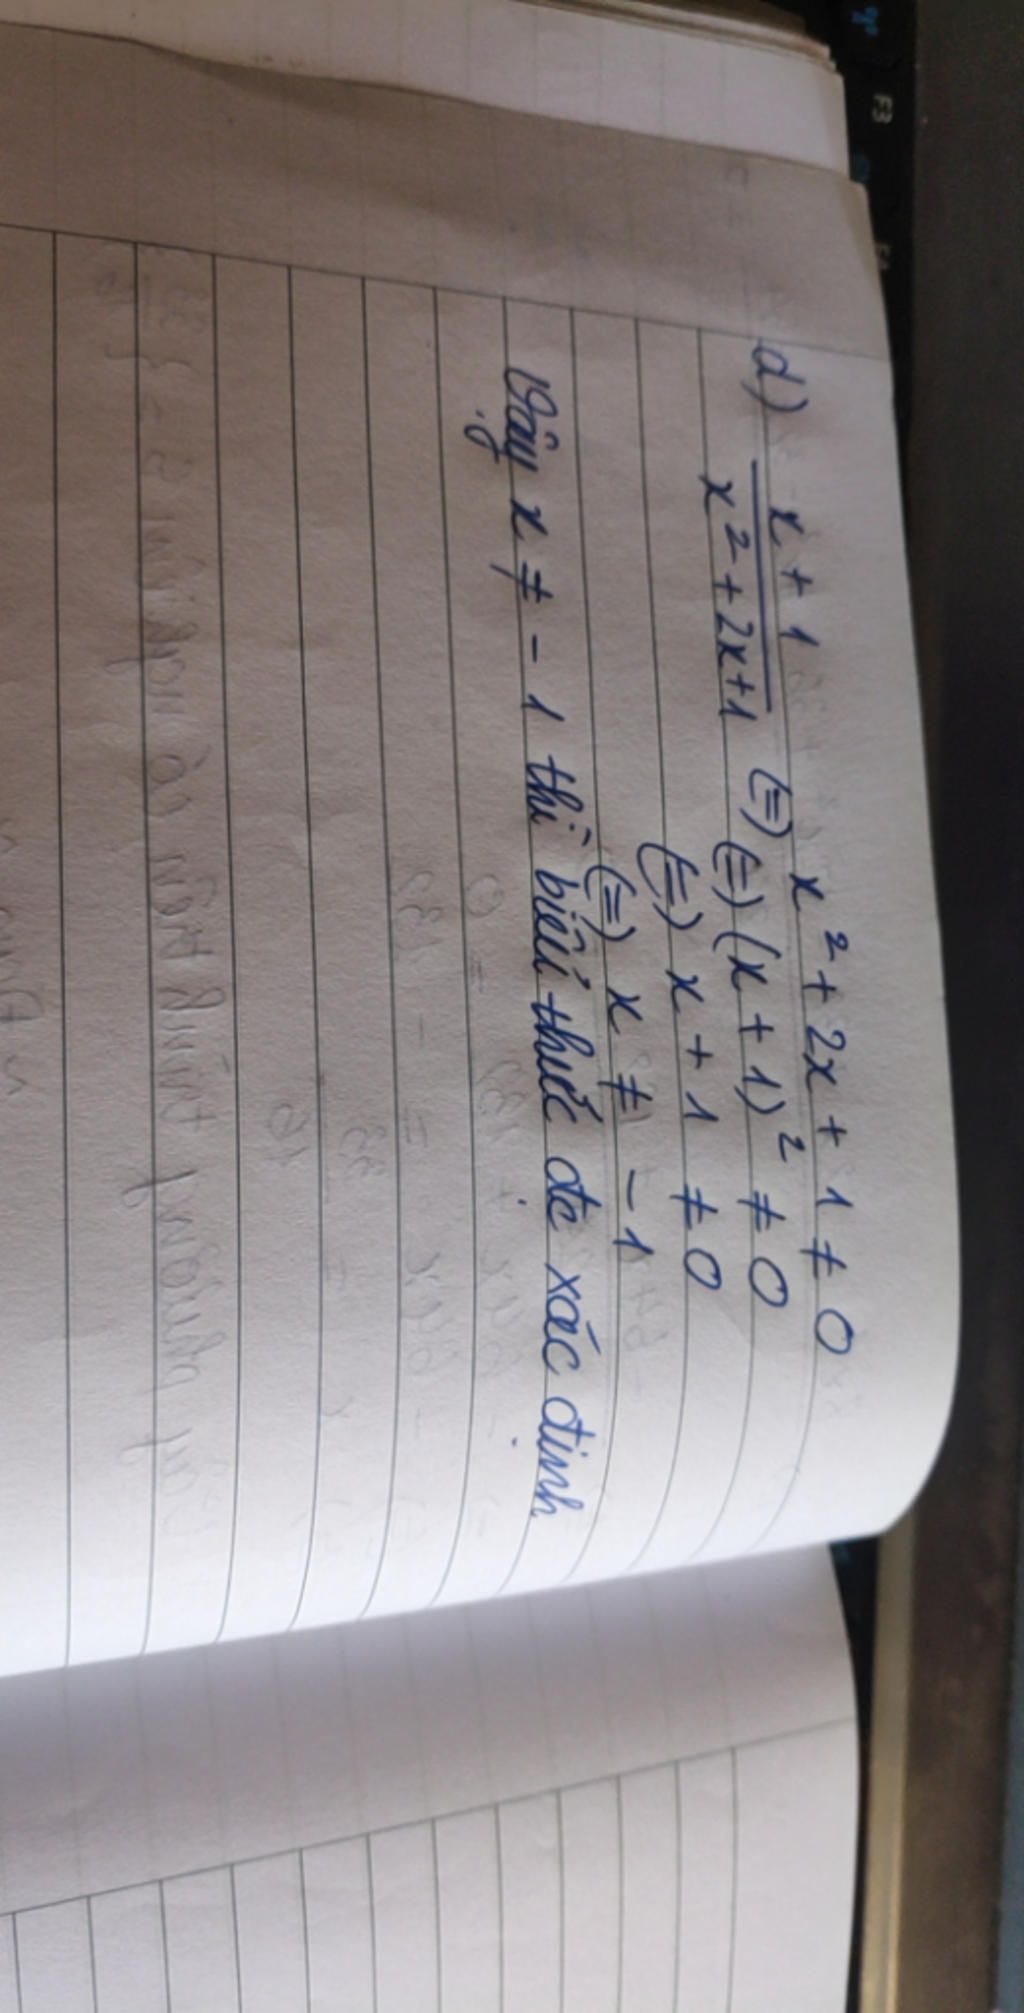 d) x + 1 / x² + 2x + 1 (=) x² + 2x + 1 ≠ 0
(=) (x + 1)² ≠ 0
(=) x + 1 ≠ 0
(=) x ≠ - 1
Vậy x ≠ - 1 thì biểu thức đc xác định
F3